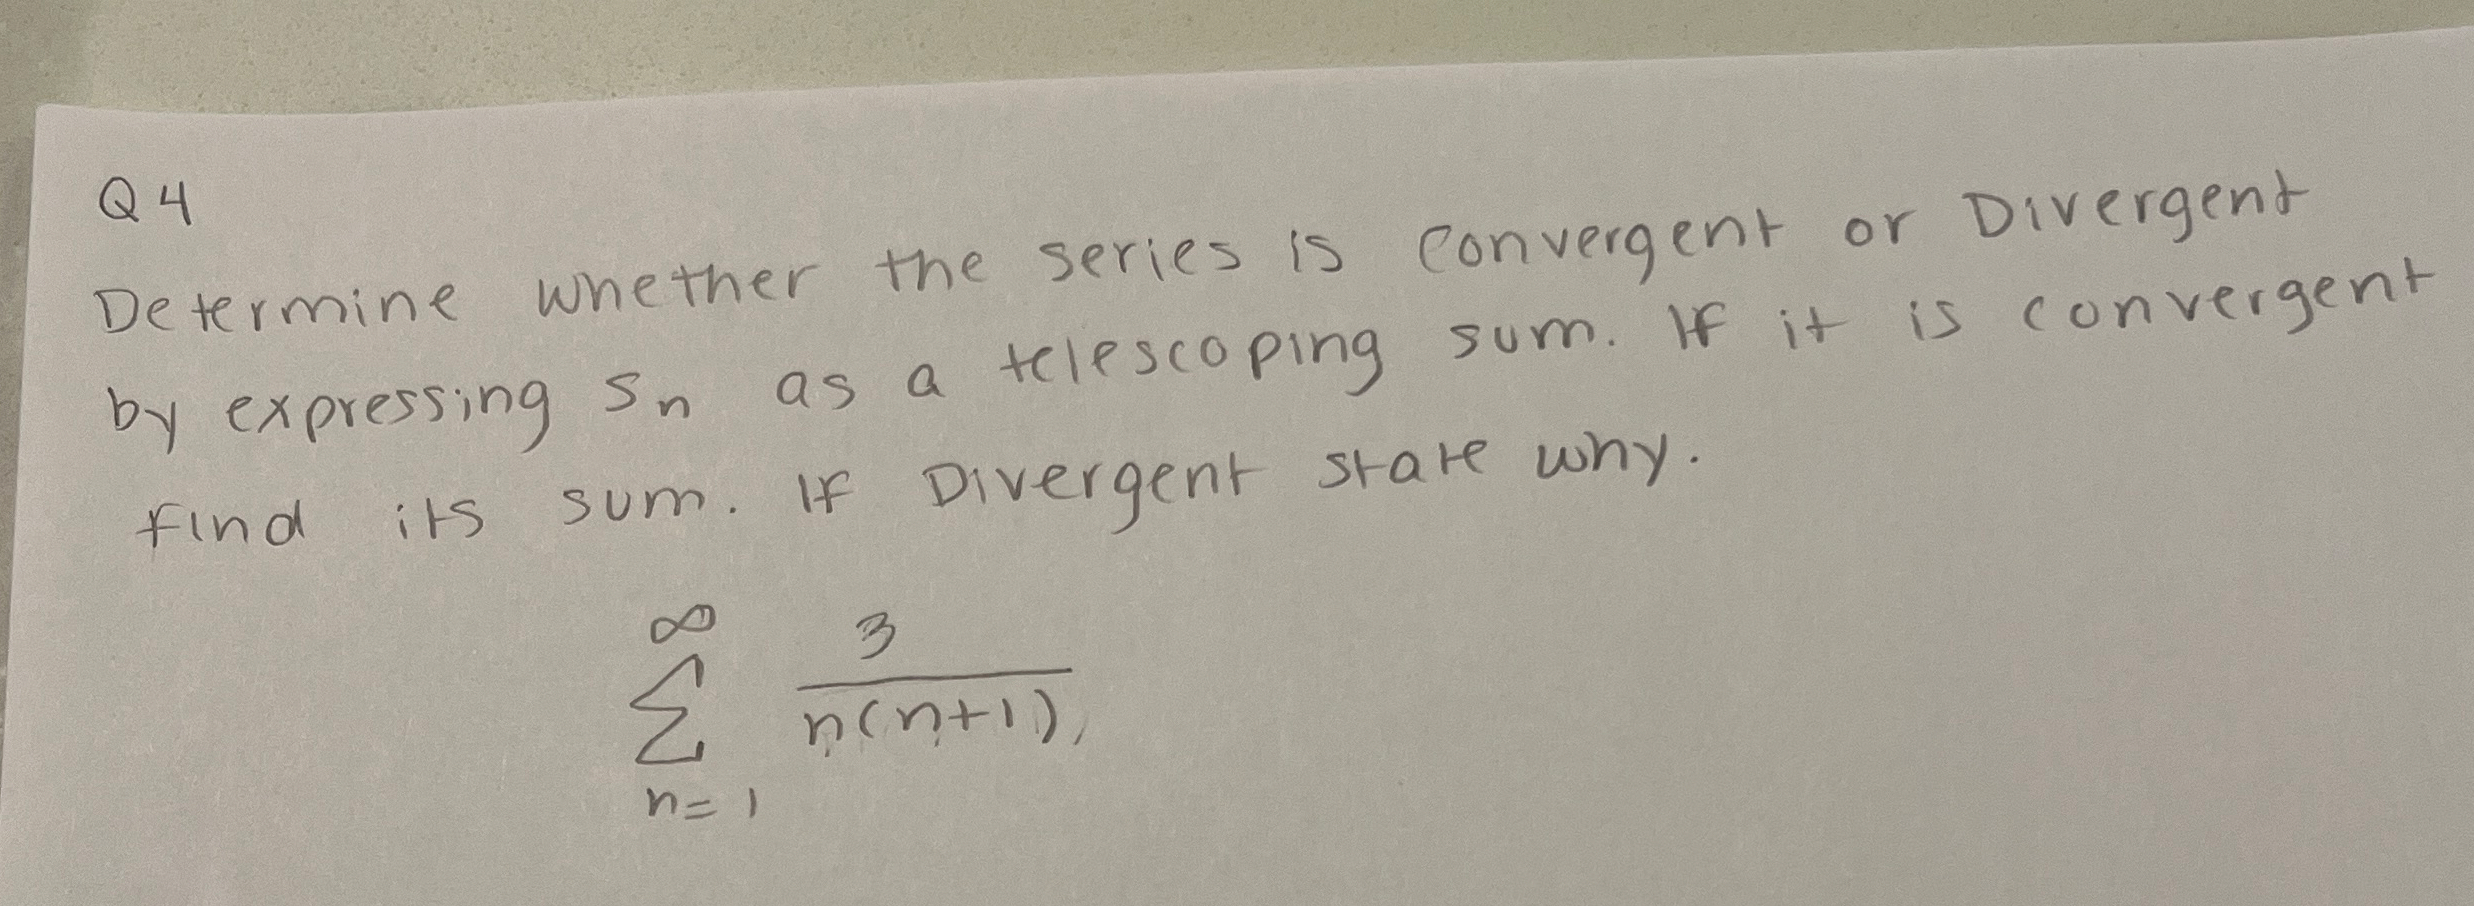 Q4
Determine whether the series is convergent or Divergent
by expressing Sn as a telescoping sum. If it is convergent
find its sum. If Divergent state why.
∞
∑ 3/n(n+1),
n=1